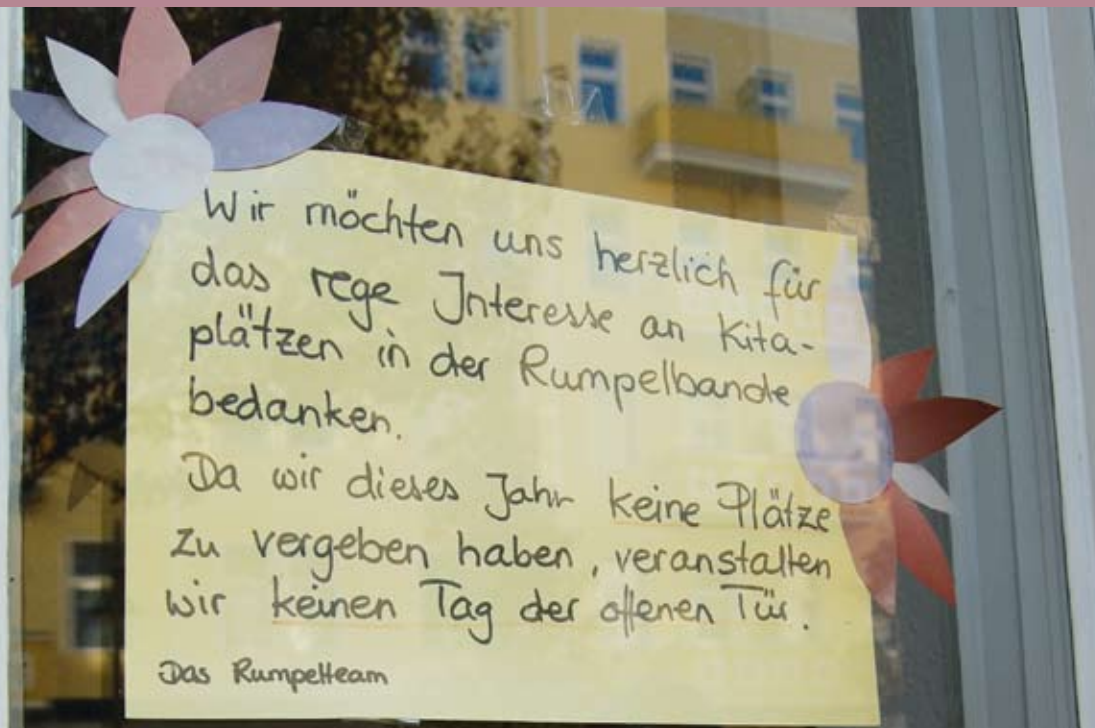 Wir möchten uns herzlich für
das rege Interesse an Kita-
plätzen in der Rumpelbande
bedanken.
Da wir dieses Jahr keine Plätze
zu vergeben haben, veranstalten
wir keinen Tag der offenen Tür.
Das Rumpelteam